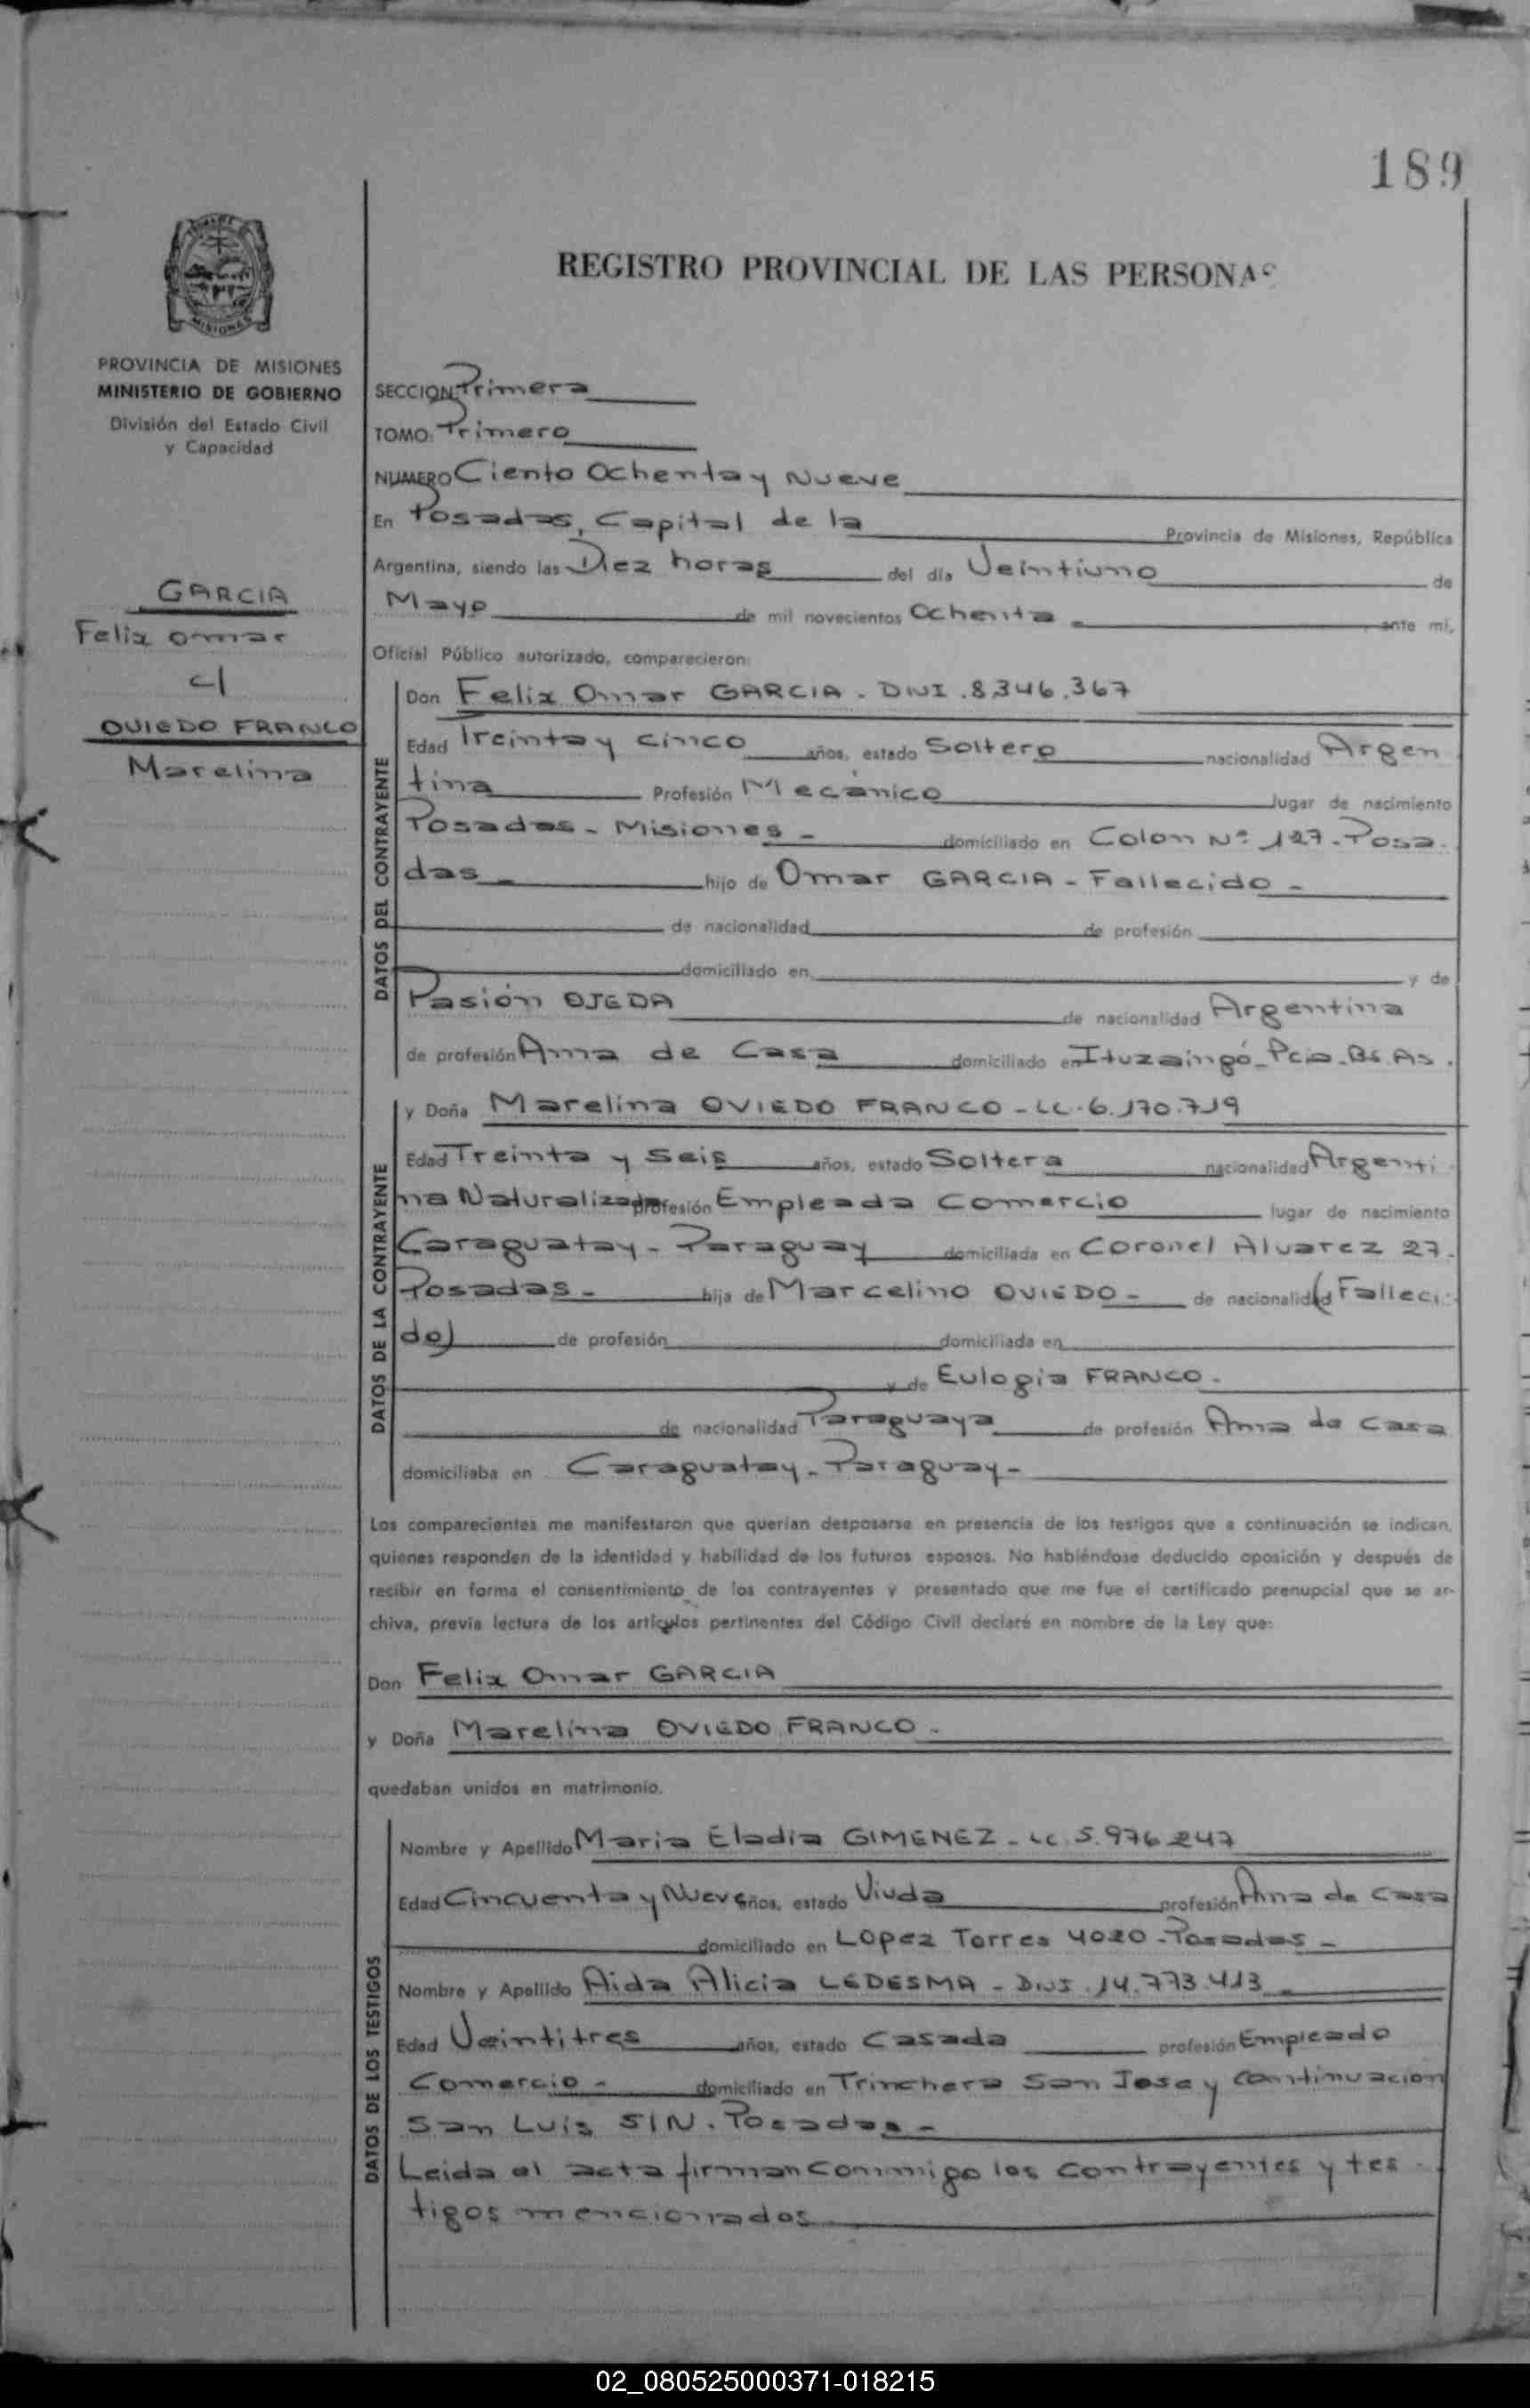 189
REGISTRO PROVINCIAL DE LAS PERSONAS
MISIONES
PROVINCIA DE MISIONES
MINISTERIO DE GOBIERNO
División del Estado Civil
y Capacidad
GARCIA
Felix Omar
c/
OVIEDO FRANCO
Marelina
SECCION: Primera
TOMO: Primero
NUMERO Ciento Ochenta y Nueve
En Posadas, Capital de la Provincia de Misiones, República
Argentina, siendo las Diez horas del día Veintiuno de
Mayo de mil novecientos Ochenta - ante mí,
Oficial Público autorizado, comparecieron:
DATOS DEL CONTRAYENTE
Don Felix Omar GARCIA - DNI. 8.346.367
Edad Treinta y cinco años, estado Soltero nacionalidad Argen
tina Profesión Mecánico lugar de nacimiento
Posadas - Misiones - domiciliado en Colon Nº 127 - Posa-
das - hijo de Omar GARCIA - Fallecido -
de nacionalidad de profesión
domiciliado en y de
Pasión OJEDA de nacionalidad Argentina
de profesión Ama de Casa domiciliado en Ituzaingó - Pcia. Bs. As.
DATOS DE LA CONTRAYENTE
y Doña Marelina OVIEDO FRANCO - LC. 6.170.719
Edad Treinta y Seis años, estado Soltera nacionalidad Argenti
na Naturalizada profesión Empleada Comercio lugar de nacimiento
Caraguatay - Paraguay domiciliada en Coronel Alvarez 27.
Posadas - hija de Marcelino OVIEDO - de nacionalidad (Falleci-
do) de profesión domiciliada en
y de Eulogia FRANCO.
de nacionalidad Paraguaya de profesión Ama de Casa
domiciliaba en Caraguatay - Paraguay -
Los comparecientes me manifestaron que querían desposarse en presencia de los testigos que a continuación se indican,
quienes responden de la identidad y habilidad de los futuros esposos. No habiéndose deducido oposición y después de
recibir en forma el consentimiento de los contrayentes y presentado que me fue el certificado prenupcial que se ar-
chiva, previa lectura de los artículos pertinentes del Código Civil declaré en nombre de la Ley que:
Don Felix Omar GARCIA
y Doña Marelina OVIEDO FRANCO -
quedaban unidos en matrimonio.
DATOS DE LOS TESTIGOS
Nombre y Apellido Maria Eladia GIMENEZ - LC. 5.976.247
Edad Cincuenta y Nueve años, estado Viuda profesión Ama de Casa
domiciliado en Lopez Torres 4020 - Posadas -
Nombre y Apellido Aida Alicia LEDESMA - DNI. 14.773.413 -
Edad Veintitres años, estado Casada profesión Empleado
Comercio - domiciliado en Trinchera San Jose y continuacion
San Luis S/N. Posadas -
Leida el acta firman conmigo los contrayentes y tes-
tigos mencionados
02_080525000371-018215